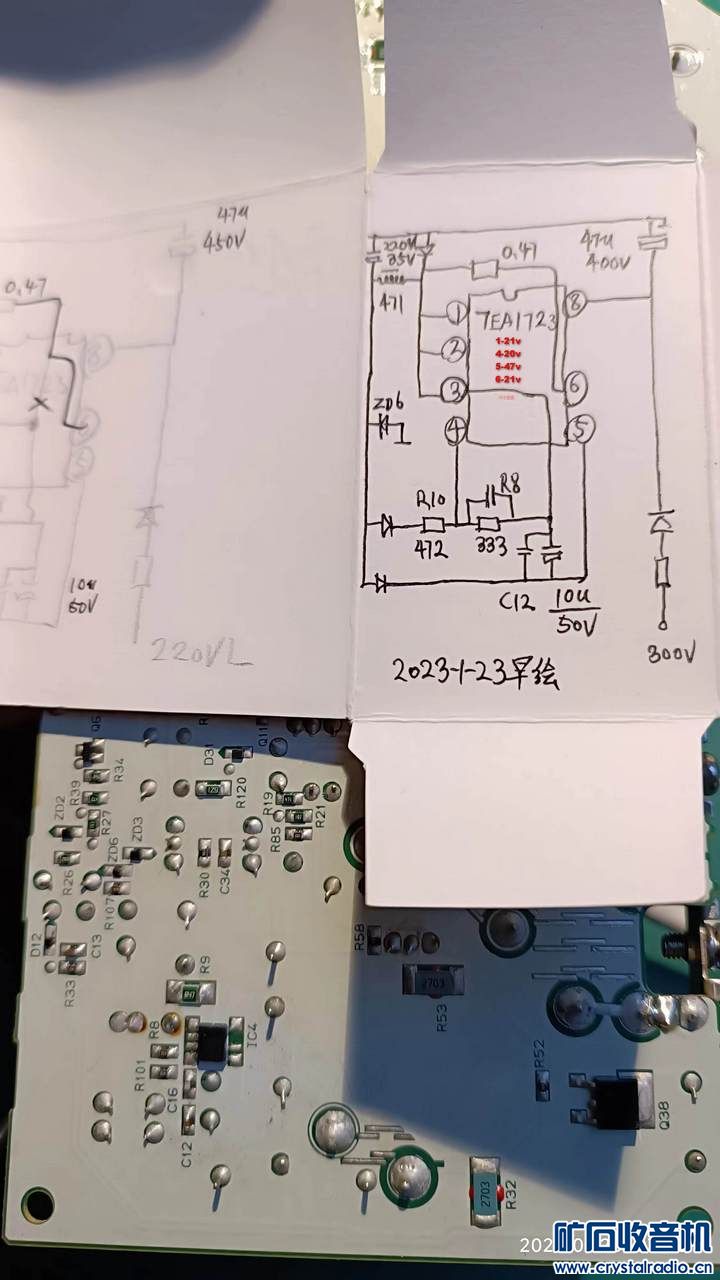 47u
450V
0.47
8
10u
50V
220VL
220V
35V
471
0.47
47u
400V
1
2
3
4
8
6
5
7EA1723
1-21v
4-20v
5-47v
6-21v
ZD6
R10
472
R8
333
C12
10u
50V
300V
2023-1-23早绘
Q6
R34
R39
R27
ZD2
ZD3
ZD6
R26
R107
D12
C13
R33
D31
R120
Q11
R19
R21
R85
R30
C34
R9
R8
IC4
R101
C16
C12
R58
2703
R53
R52
Q38
2703
R32
矿石收音机
www.crystalradio.cn